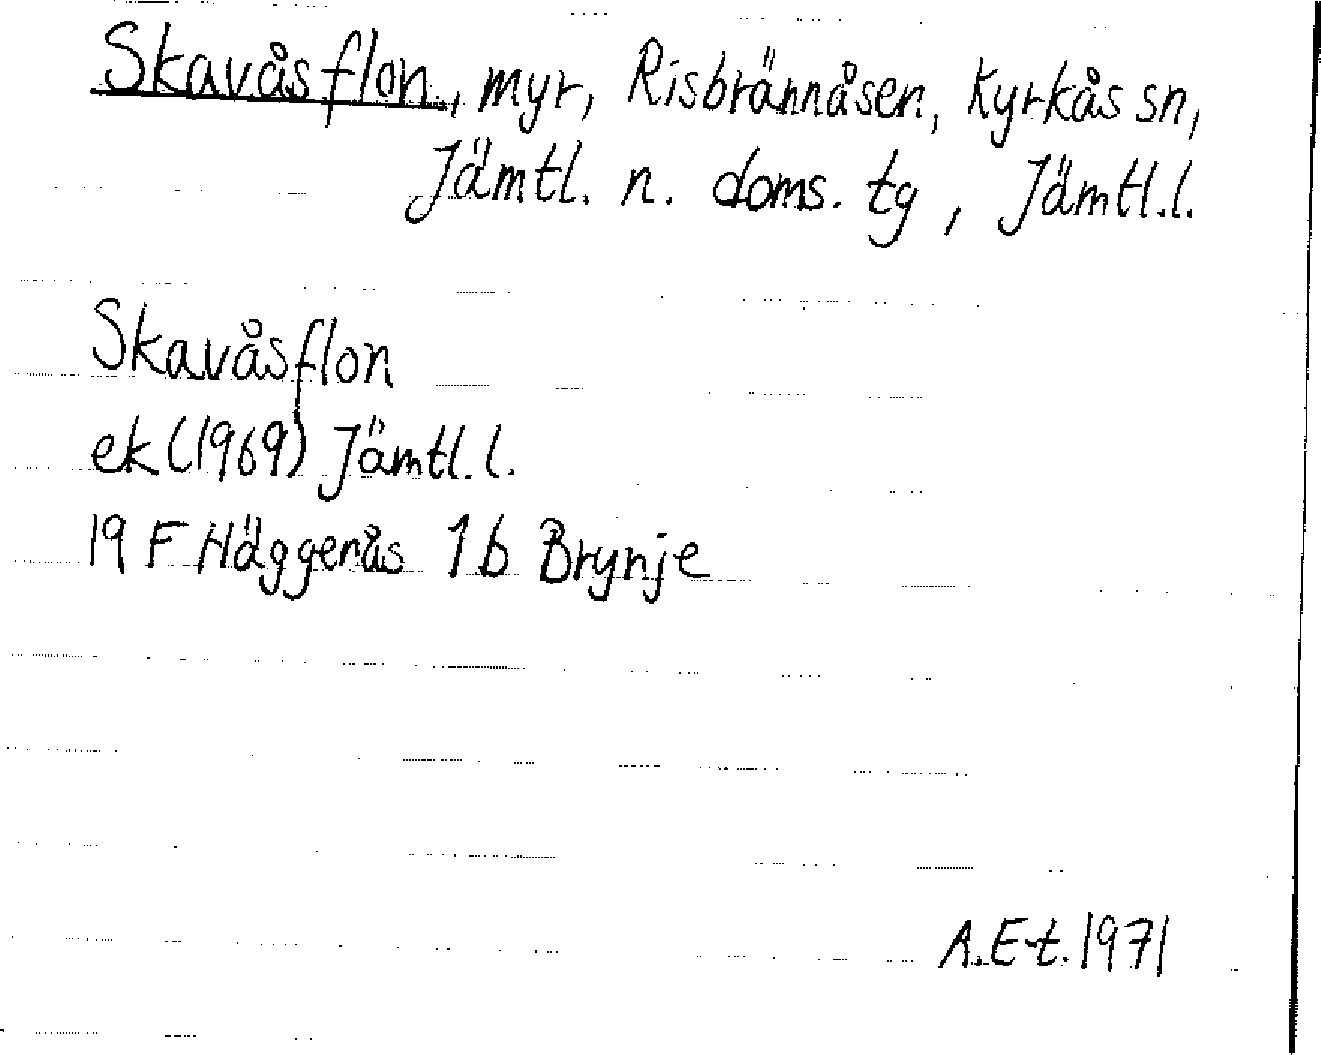 Skavåsflon, myr, Risbrännåsen, Kyrkås sn,
Jämtl. n. doms. tg, Jämtl.l.
Skavåsflon
ek (1969) Jämtl.l.
19 F Häggenås 1b Brynje
A.E-t. 1971